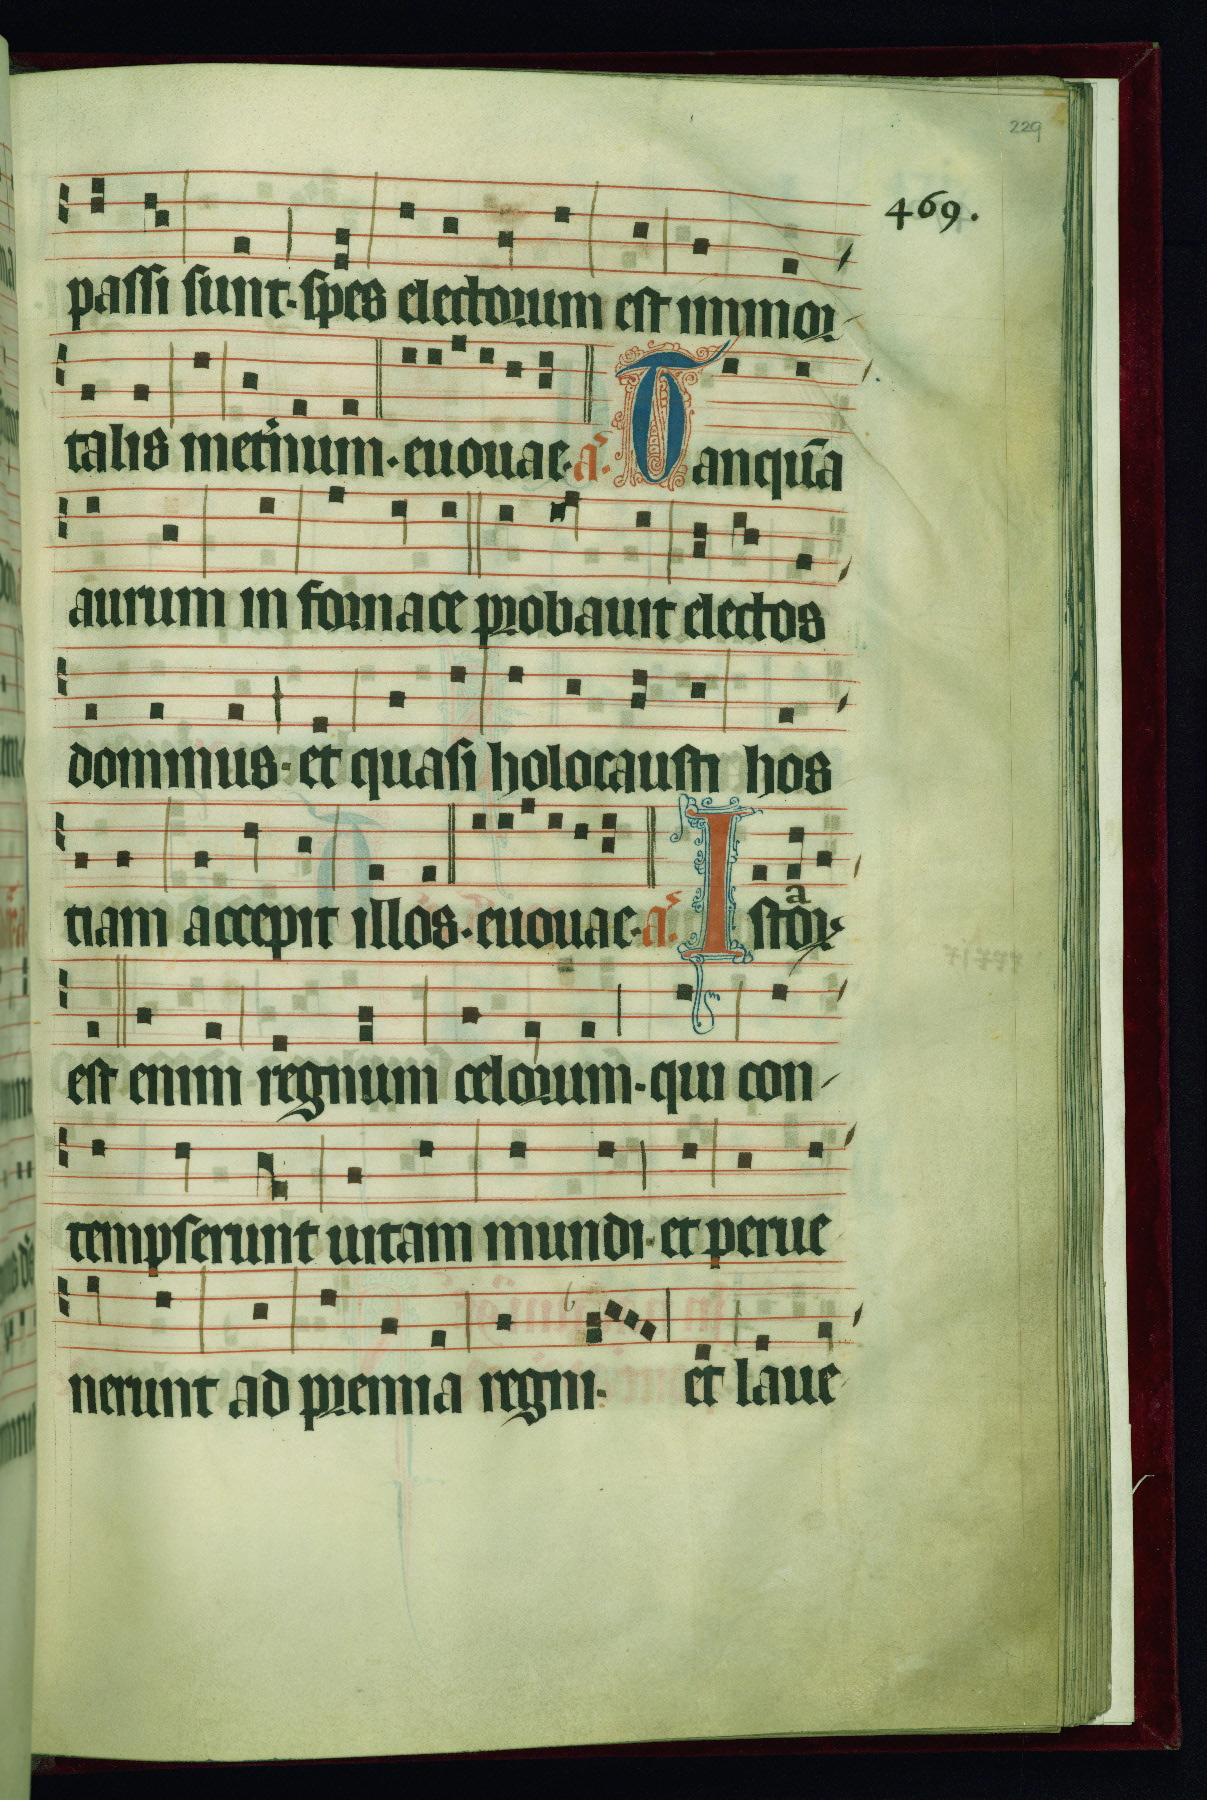 229
469.
passi sunt. spes electorum est immor-
talis met̾inum. euouae. a̾. Tanquā
aurum in fornace probauit electos
dominus. et quasi holocausti hos
tiam accepit illos. euouae. a̾. Istoꝝ
est enim regnum celorum. qui con-
tempserunt uitam mundi. et perue
nerunt ad premia regni. et laue